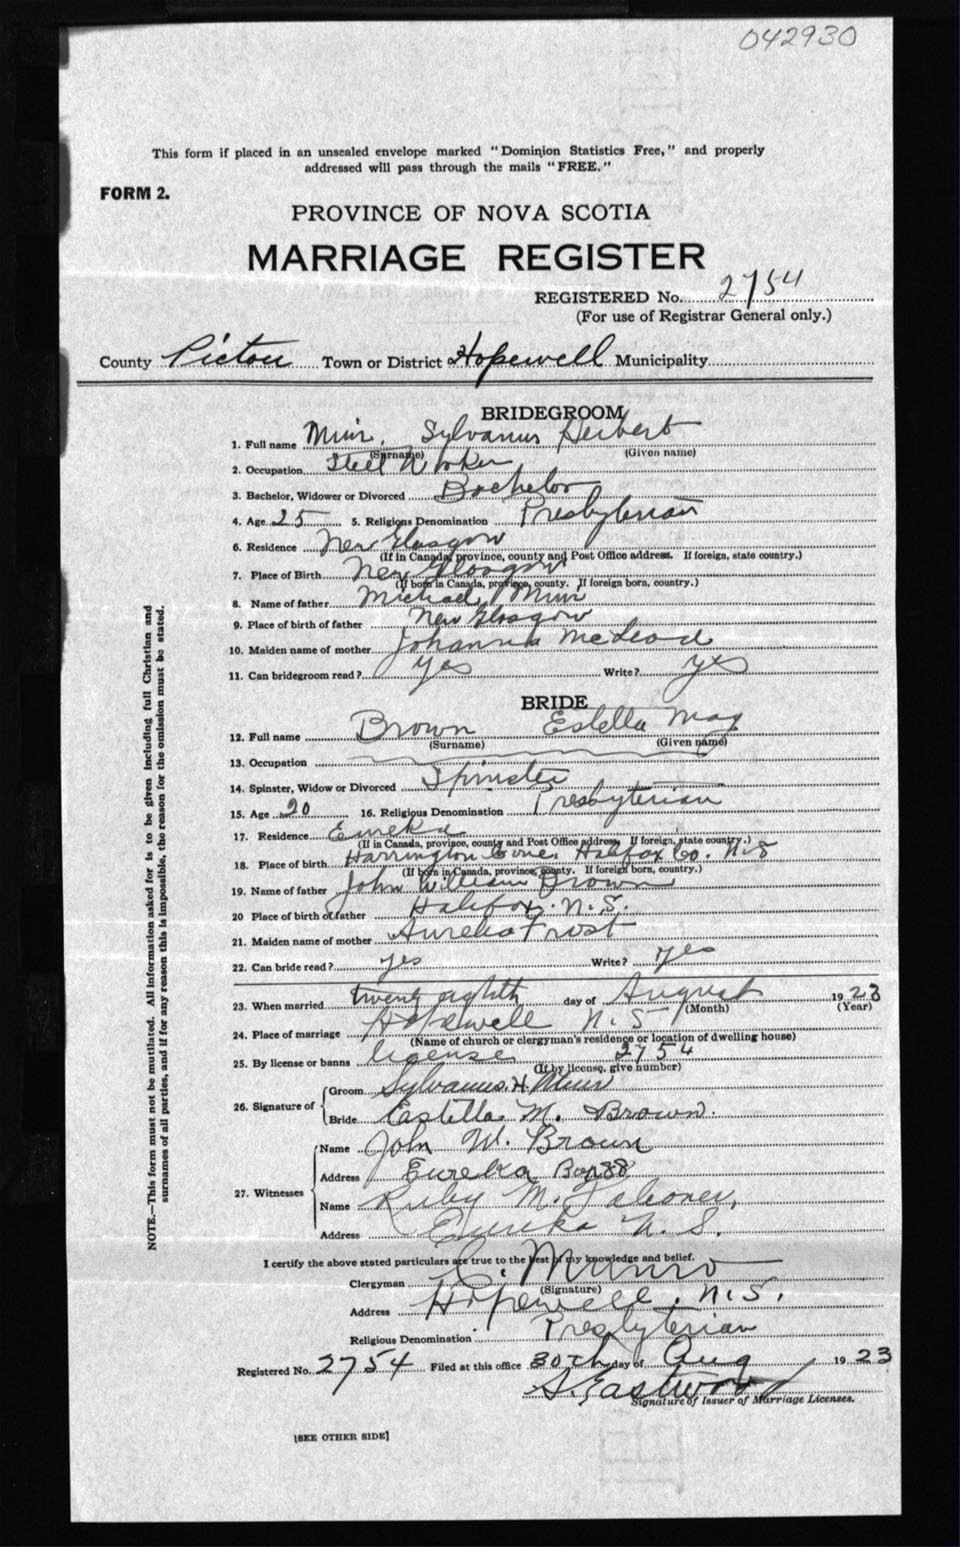 042930
This form if placed in an unsealed envelope marked "Dominion Statistics Free," and properly
addressed will pass through the mails "FREE."
FORM 2.
PROVINCE OF NOVA SCOTIA
MARRIAGE REGISTER
REGISTERED No. 2754
(For use of Registrar General only.)
County Pictou Town or District Hopewell Municipality
BRIDEGROOM
1. Full name Muir, Sylvanus Herbert
(Surname) (Given name)
2. Occupation Steel Worker
3. Bachelor, Widower or Divorced Bachelor
4. Age 25 5. Religious Denomination Presbyterian
6. Residence New Glasgow
(If in Canada, province, county and Post Office address. If foreign, state country.)
7. Place of Birth New Glasgow
(If born in Canada, province, county. If foreign born, country.)
8. Name of father Michael Muir
9. Place of birth of father New Glasgow
10. Maiden name of mother Johanna McLeod
11. Can bridegroom read? Yes Write? yes
BRIDE
12. Full name Brown Estella May
(Surname) (Given name)
13. Occupation
14. Spinster, Widow or Divorced Spinster
15. Age 20 16. Religious Denomination Presbyterian
17. Residence Eureka
(If in Canada, province, county and Post Office address, If foreign, state country.)
18. Place of birth Harrington Cove, Halifax Co. N.S
(If born in Canada, province, county. If foreign born, country.)
19. Name of father John William Brown
20 Place of birth of father Halifax. N.S.
21. Maiden name of mother Aurelia Frost
22. Can bride read? yes Write? yes
23. When married twenty eighth day of August 1923
(Month) (Year)
24. Place of marriage Hopewell N.S
(Name of church or clergyman's residence or location of dwelling house)
25. By license or banns license 2754
(If by license, give number)
26. Signature of
Groom Sylvanus H. Muir
Bride Estella M. Brown.
27. Witnesses
Name John W. Brown
Address Eureka Box 88
Name Ruby M.
Address Eureka N.S.
I certify the above stated particulars are true to the best of my knowledge and belief.
Clergyman Munro
(Signature)
Address Hopewell, N.S.
Religious Denomination Presbyterian
Registered No. 2754 Filed at this office 30th day of Aug 1923
S. Eastwood
Signature of Issuer of Marriage Licenses.
[SEE OTHER SIDE]
NOTE.—This form must not be mutilated. All information asked for is to be given including full Christian and
surnames of all parties, and if for any reason this is impossible, the reason for the omission must be stated.